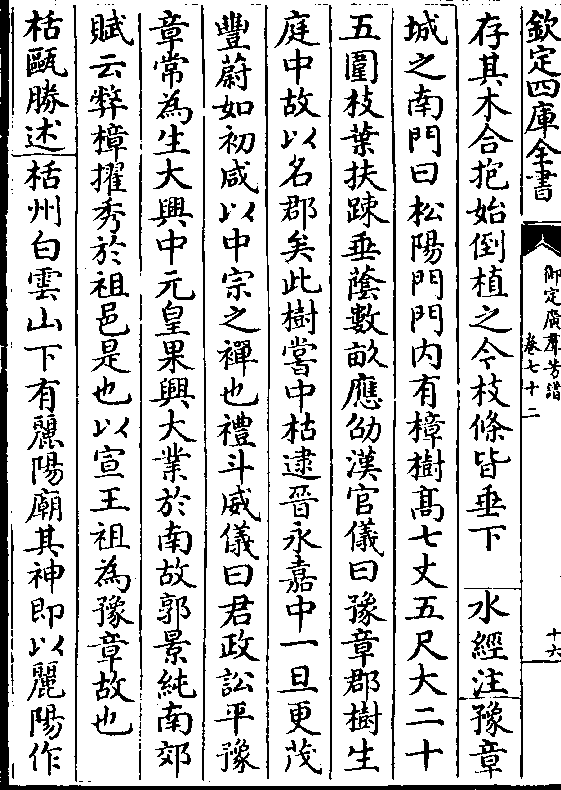 欽定四庫全書
御定廣羣芳譜
卷七十二
十六
存其木合抱始倒植之今枝條皆垂下　水經注豫章
城之南門曰松陽門門内有樟樹髙七丈五尺大二十
五圍枝葉扶踈垂蔭數畝應劭漢官儀曰豫章郡樹生
庭中故以名郡矣此樹嘗中枯逮晉永嘉中一旦更茂
豐蔚如初咸以中宗之禪也禮斗威儀曰君政訟平豫
章常為生大興中元皇果興大業於南故郭景純南郊
賦云弊樟擢秀於祖邑是也以宣王祖為豫章故也
栝甌勝述栝州白雲山下有麗陽廟其神即以麗陽作